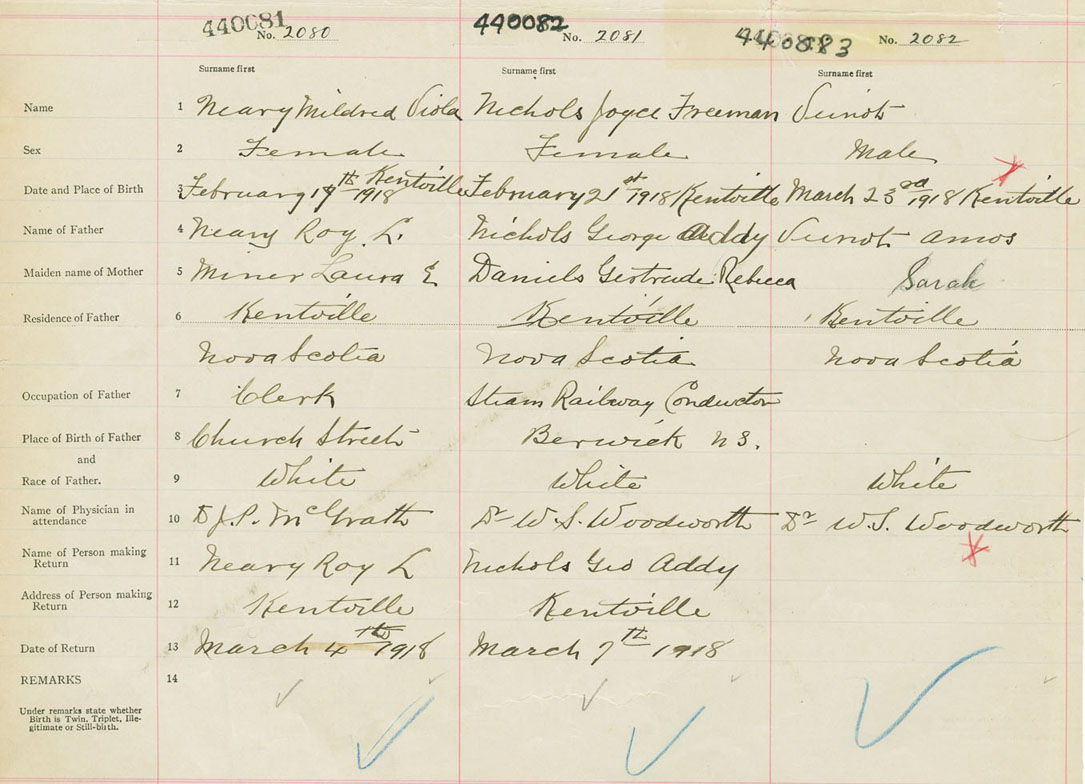 440081 No. 2080 440082 No. 2081 440083 No. 2082
Surname first Surname first Surname first
Name 1 Neary Mildred Viola Nichols Joyce Freeman
Sex 2 Female Female Male
Date and Place of Birth 3 February 19th 1918 Kentville February 21st 1918 Kentville March 23rd 1918 Kentville
Name of Father 4 Neary Roy L. Nichols George Addy Amos
Maiden name of Mother 5 Miner Laura E Daniels Gertrude Rebecca Sarah
Residence of Father 6 Kentville Kentville Kentville
Nova Scotia Nova Scotia Nova Scotia
Occupation of Father 7 Clerk Steam Railway Conductor
Place of Birth of Father 8 Church Street Berwick N S.
and
Race of Father. 9 White White White
Name of Physician in
attendance 10 D J.P. McGrath Dr W.S. Woodworth Dr W.S. Woodworth
Name of Person making
Return 11 Neary Roy L Nichols Geo Addy
Address of Person making
Return 12 Kentville Kentville
Date of Return 13 March 4th 1918 March 7th 1918
REMARKS 14
Under remarks state whether
Birth is Twin, Triplet, Ille-
gitimate or Still-birth.